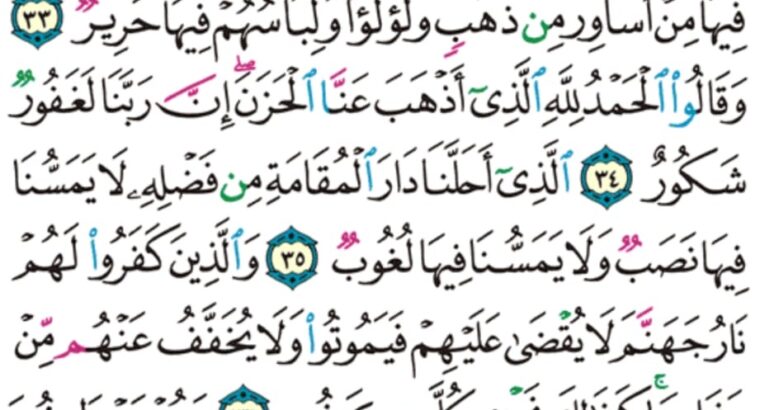 فِيهَا مِنْ أَسَاوِرَ مِن ذَهَبٍ وَلُؤْلُؤًا وَلِبَاسُهُمْ فِيهَا حَرِيرٌ ٣٣
وَقَالُوا۟ ٱلْحَمْدُ لِلَّهِ ٱلَّذِىٓ أَذْهَبَ عَنَّا ٱلْحَزَنَ ۖ إِنَّ رَبَّنَا لَغَفُورٌ
شَكُورٌ ٣٤ ٱلَّذِىٓ أَحَلَّنَا دَارَ ٱلْمُقَامَةِ مِن فَضْلِهِۦ لَا يَمَسُّنَا
فِيهَا نَصَبٌ وَلَا يَمَسُّنَا فِيهَا لُغُوبٌ ٣٥ وَٱلَّذِينَ كَفَرُوا۟ لَهُمْ
نَارُ جَهَنَّمَ لَا يُقْضَىٰ عَلَيْهِمْ فَيَمُوتُوا۟ وَلَا يُخَفَّفُ عَنْهُم مِّنْ